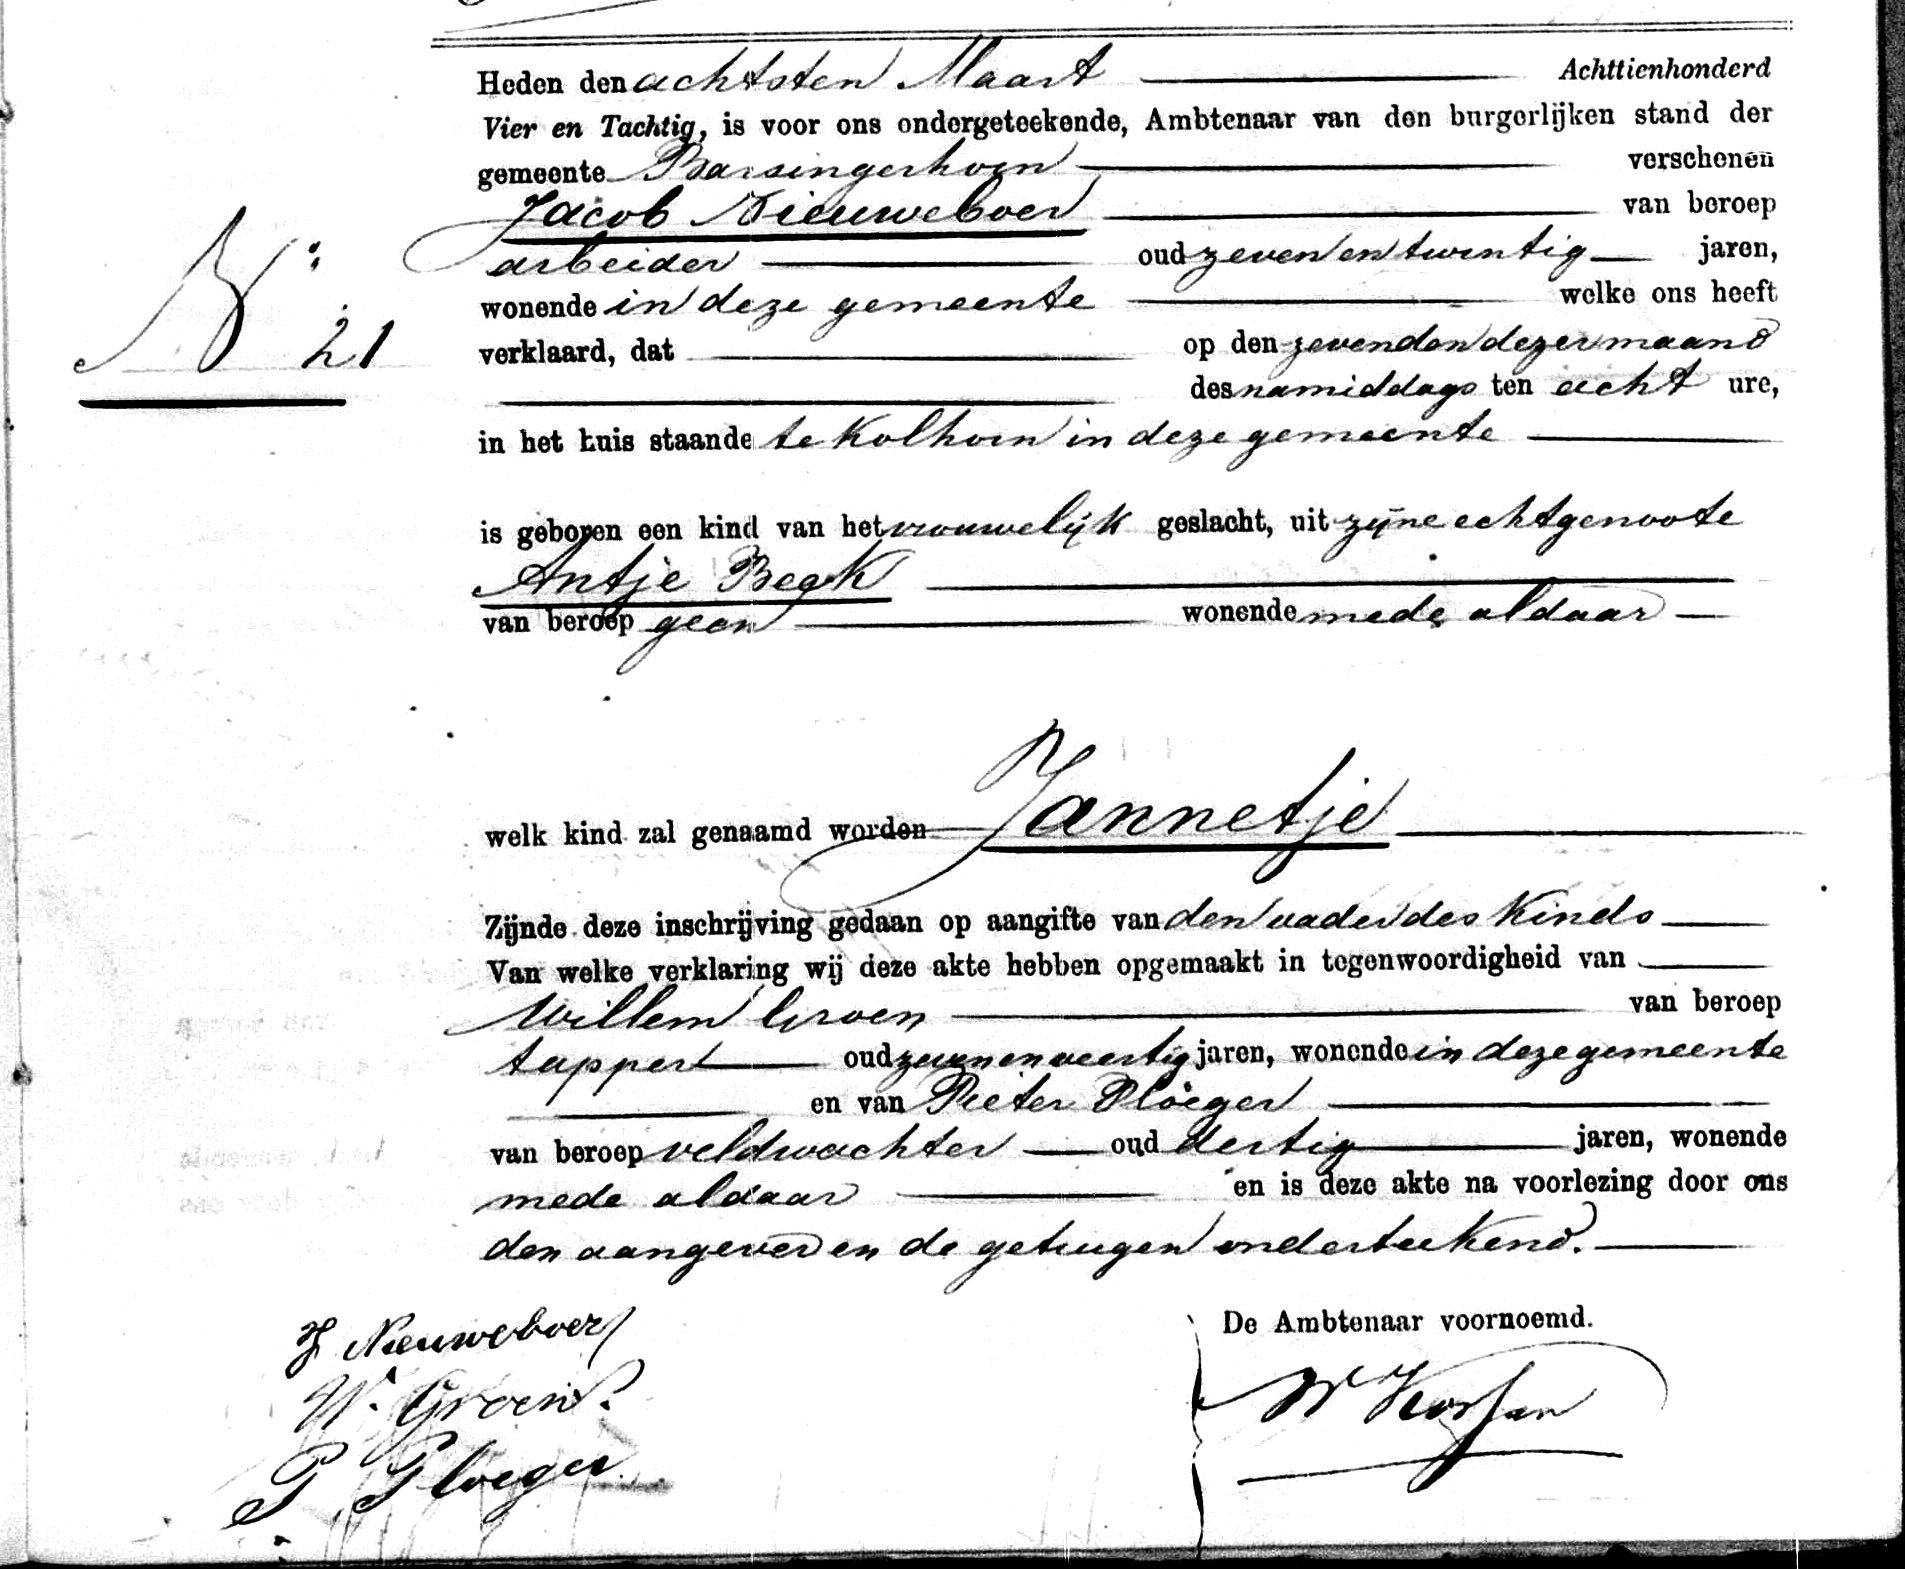 Heden den achtsten Maart Achttienhonderd
Vier en Tachtig, is voor ons ondergeteekende, Ambtenaar van den burgerlijken stand der
gemeente Barsingerhorn verschenen
Jacob Nieuweboer van beroep
arbeider oud zeven en twintig jaren,
wonende in deze gemeente welke ons heeft
No 21
verklaard, dat op den zevenden dezer maand
des namiddags ten acht ure,
in het huis staande te Kolhorn in deze gemeente
is geboren een kind van het vrouwelijk geslacht, uit zijne echtgenoote
Antje Begk
van beroep geen wonende mede aldaar
welk kind zal genaamd worden Jannetje
Zijnde deze inschrijving gedaan op aangifte van den vader des kinds
Van welke verklaring wij deze akte hebben opgemaakt in tegenwoordigheid van
Willem Groen van beroep
tapper oud zeven en veertig jaren, wonende in deze gemeente
en van Pieter Ploeger
van beroep veldwachter oud dertig jaren, wonende
mede aldaar en is deze akte na voorlezing door ons
den aangever en de getuigen onderteekend.
J Nieuweboer
W. Groen.
P Ploeger
De Ambtenaar voornoemd.